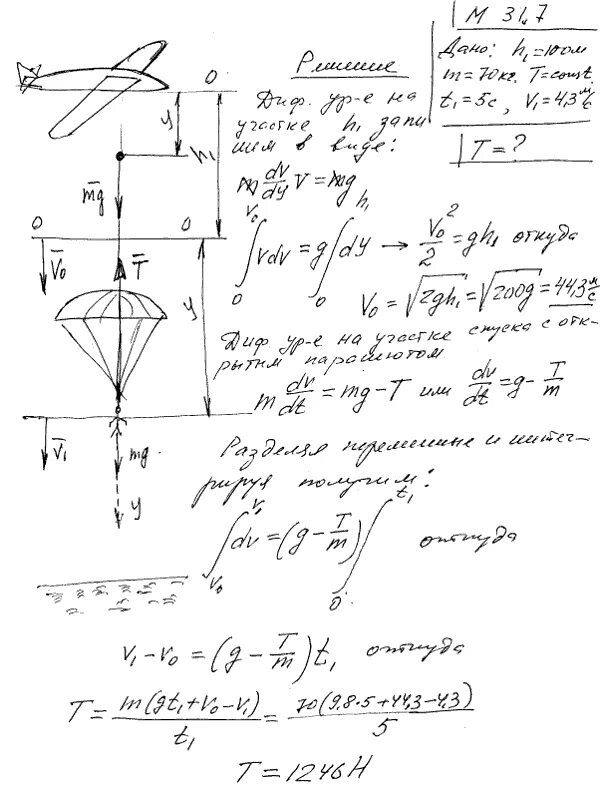 M 31.7
Дано: h₁=100м
m=70кг. T=const.
t₁=5с, V₁=4,3 м/с
T=?
Решение
Диф. ур-е на
участке h₁ запи
шем в виде:
m dv/dy V = mg
∫₀^V₀ vdv = g∫₀^h₁ dy → V₀²/2 = gh₁ откуда
V₀ = √2gh₁ = √200g = 44,3 м/с
Диф ур-е на участке спуска с отк-
рытым парашютом
m dv/dt = mg-T или dv/dt = g - T/m
Разделяя переменные и интег-
рируя получим:
∫_V₀^V₁ dv = (g - T/m) ∫₀^t₁ откуда
V₁-V₀ = (g - T/m)t₁ откуда
T = m(gt₁+V₀-V₁)/t₁ = 70(9,8·5+44,3-4,3)/5
T = 1246H
O
y
h₁
m̅g̅
O
O
V̅₀
T̅
y
V̅₁
mg
y